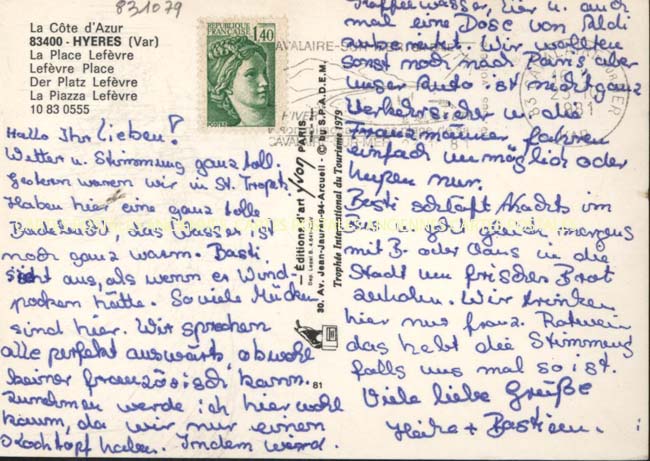 831079
La Côte d'Azur
83400 - HYERES (Var)
La Place Lefèvre
Lefèvre Place
Der Platz Lefèvre
La Piazza Lefèvre
10 83 0555
REPUBLIQUE
FRANÇAISE
1,40
POSTES
CAVALAIRE-SUR-MER
1981
Hallo Ihr Lieben!
Wetter u. Stimmung ganz toll.
Gestern waren wir in St. Tropez.
Haben hier eine ganz tolle
Badebucht, das Wasser ist
noch ganz warm. Basti
sieht aus, als wenn er Wind-
pocken hätte. So viele Mücken
sind hier. Wir sprechen
alle perfekt auswärts, obwohl
keiner französisch kann.
Zunehmen werde ich hier wohl
kaum, da wir nur einen
Kochtopf haben. Indem wird
Kaffeewasser, Eier u. auch
mal eine Dose von Aldi
Wir wollten
sonst noch nach Paris aber
unser Auto ist nicht ganz
Verkehrssicher u. die
Franzmänner fahren
einfach unmöglich oder
hupen nur.
Basti schläft Nachts im
mit B. oder Claus in die
Stadt um frisches Brot
zu holen. Wir trinken
hier nur franz. Rotwein
das hebt die Stimmung
falls uns mal so ist.
Viele liebe Grüße
Heike + Bastian.
— Éditions d'art yvon PARIS
30, Av. Jean-Jaurès-94-Arcueil - © by S.P.A.D.E.M.
Trophée International du Tourisme 1979
81